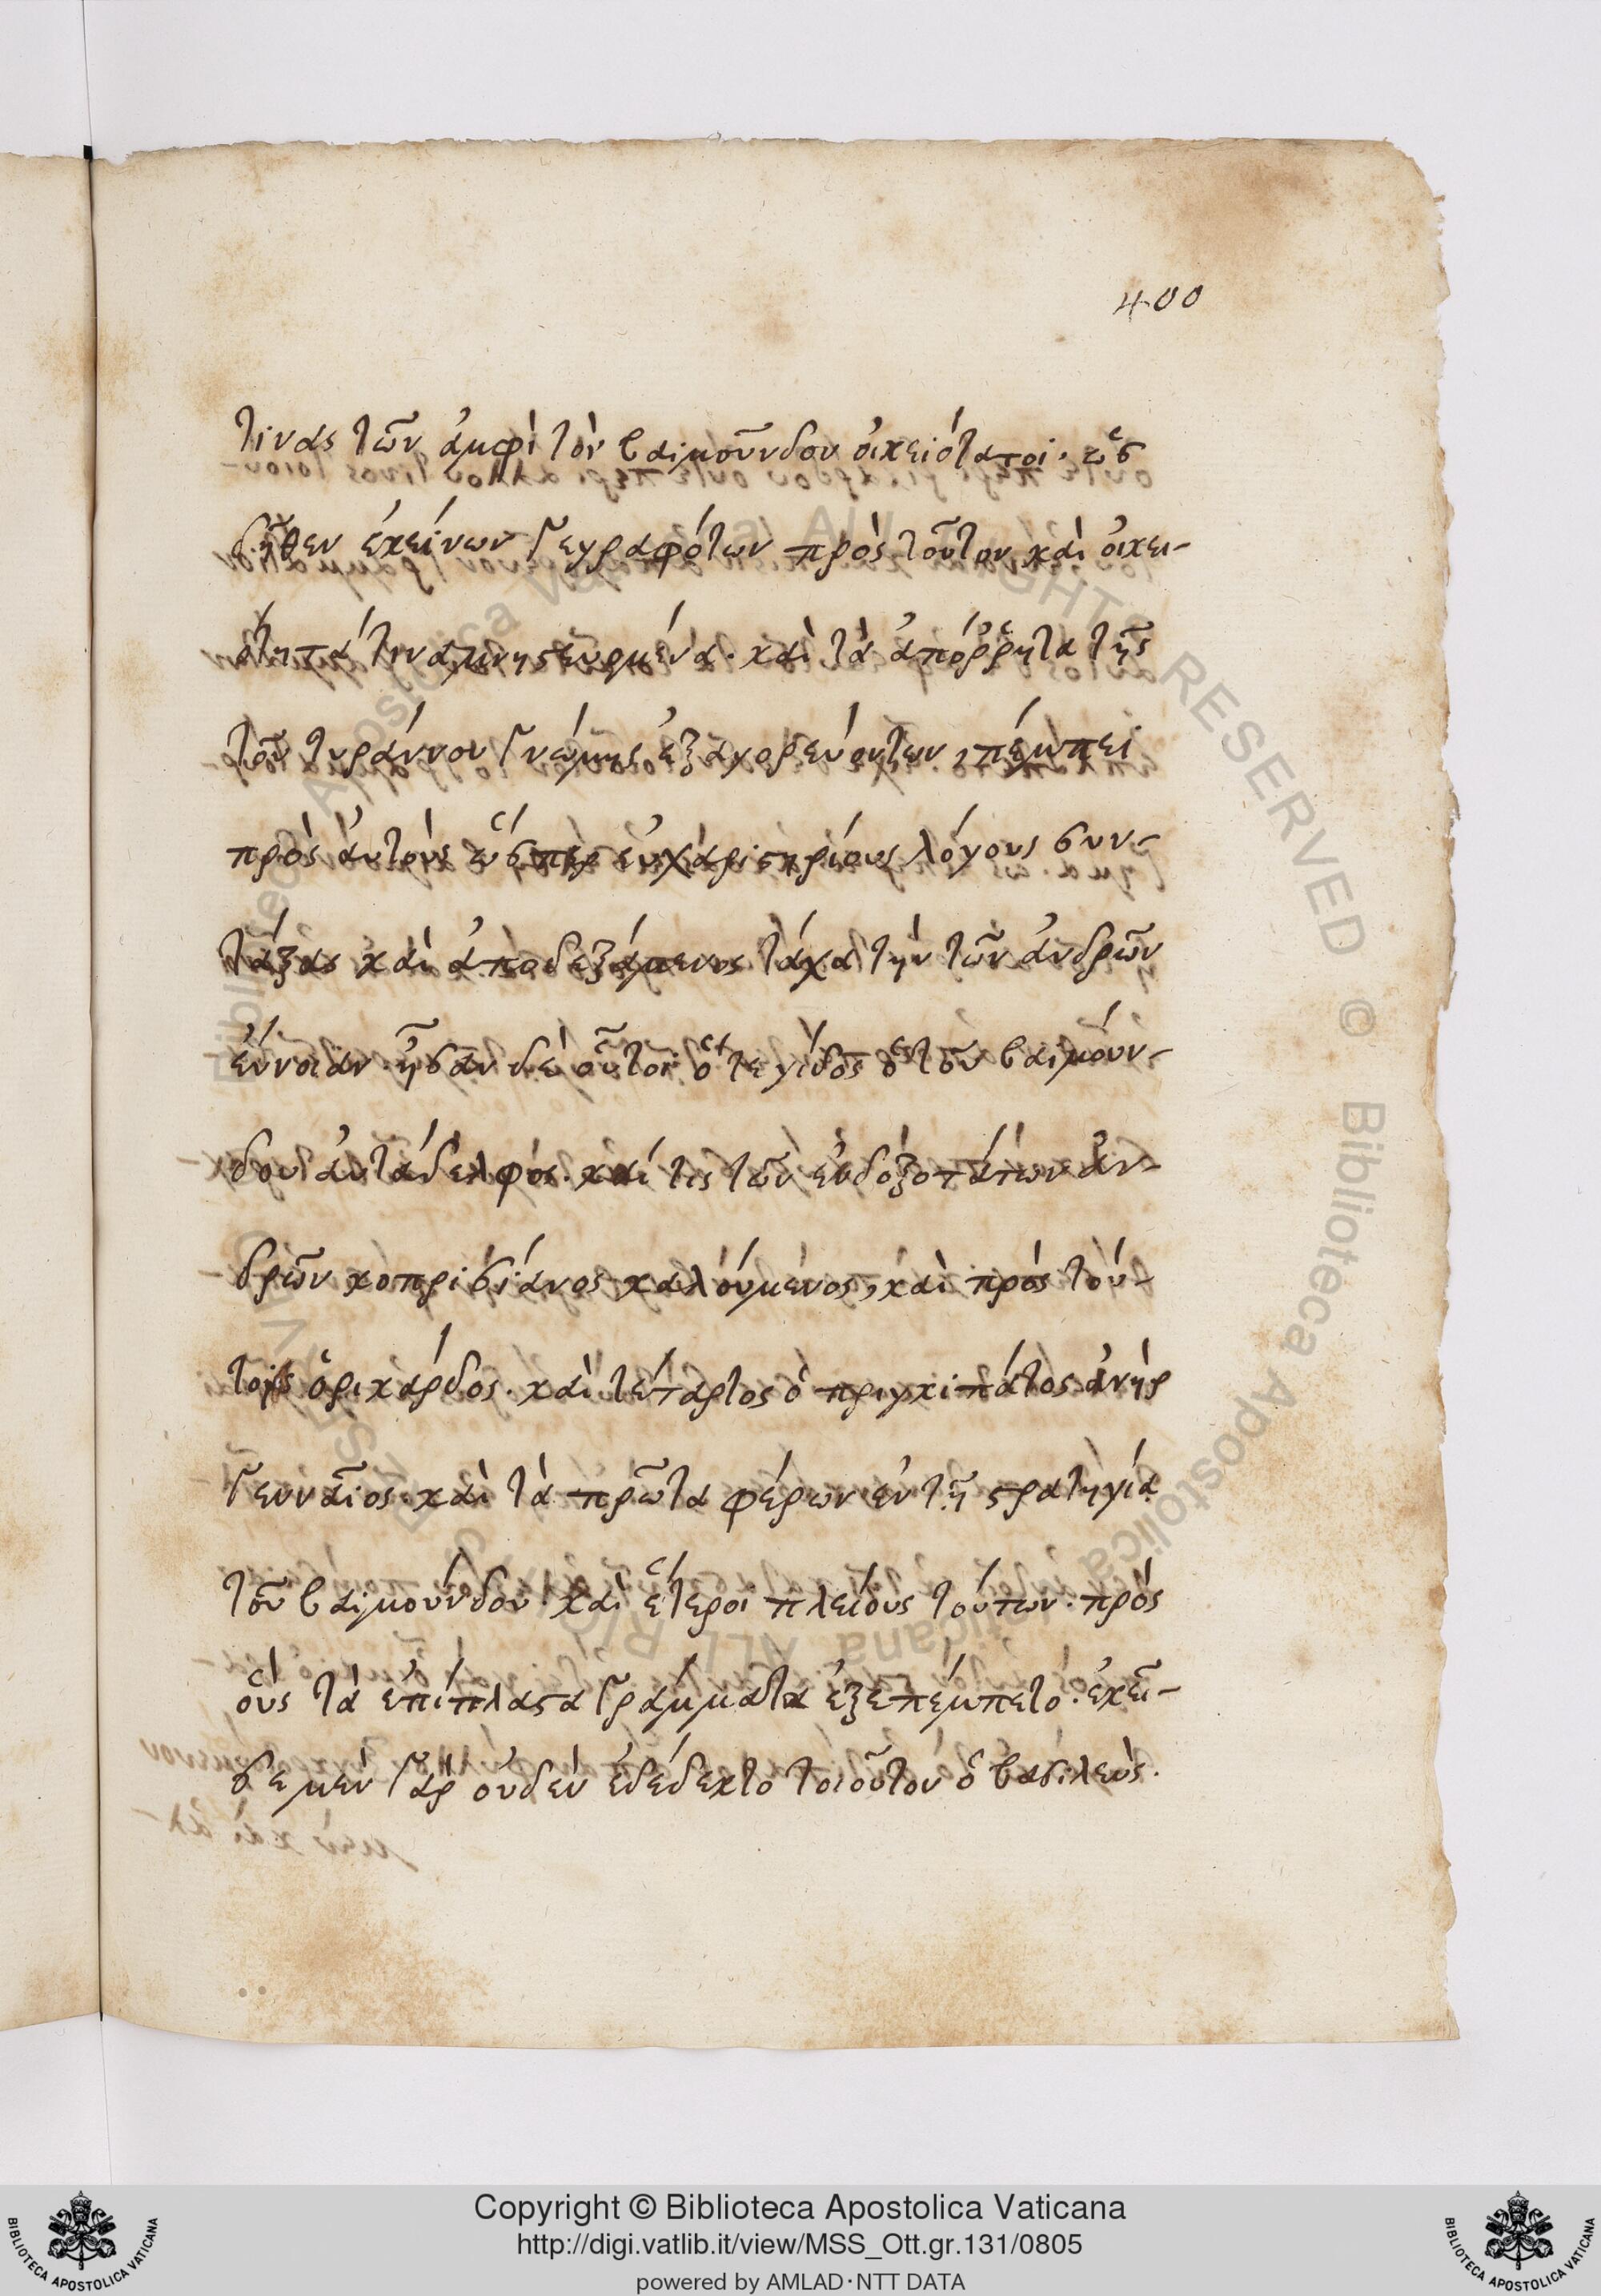 400
τινας τῶν ἀμφὶ τὸν βαϊμοῦνδον οἰκειότατοι· ὡς
δῆθεν ἐκείνων γεγραφότων πρὸς τοῦτον καὶ οἰκει-
ότητά τινα μνηστευομένα· καὶ τὰ ἀπόῤῥητα τῆς
τοῦ τυράννου γνώμης ἐξαγορευόντων, πέμπει
πρὸς αὐτοὺς ὥσπερ εὐχαριστηρίους λόγους συν-
τάξας καὶ ἀποδεξάμενος τάχα τὴν τῶν ἀνδρῶν
εὔνοιαν· ἦσαν δὲ οὗτοι ὅ τε γίδος ὁ τοῦ βαϊμούν-
δου αὐτάδελφος· καί τις τῶν ἐνδοξοτάτων ἀν-
δρῶν κοπρισιάνος καλούμενος, καὶ πρὸς τού-
τοις ὁ ῥικάρδος· καὶ τέταρτος ὁ πριγκιπάτος ἀνὴρ
γενναῖος· καὶ τὰ πρῶτα φέρων ἐν τῇ στρατηγίᾳ
τοῦ βαϊμούνδου· καὶ ἕτεροι πλείους τούτων· πρὸς
οὓς τὰ ἐπίπλαστα γράμματα ἐξεπέμπετο· ἐκεῖ-
σε μὲν γὰρ οὐδὲν ἐδέδεκτο τοιοῦτον ὁ βασιλεὺς·
Biblioteca Apostolica Vaticana ALL RIGHTS RESERVED ©
Copyright © Biblioteca Apostolica Vaticana
http://digi.vatlib.it/view/MSS_Ott.gr.131/0805
powered by AMLAD·NTT DATA
BIBLIOTECA APOSTOLICA VATICANA
BIBLIOTECA APOSTOLICA VATICANA